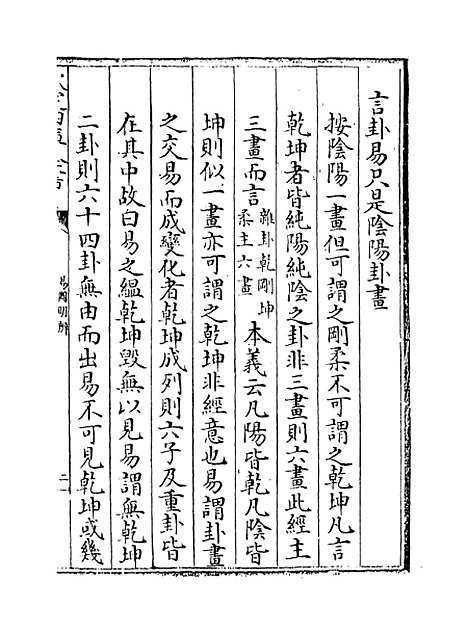 言卦易只是陰陽卦畫
按陰陽一畫但可謂之剛柔不可謂之乾坤凡言
乾坤者皆純陽純陰之卦非三畫則六畫此經主
三畫而言雜卦乾剛坤柔主六畫本義云凡陽皆乾凡陰皆
坤則似一畫亦可謂之乾坤非經意也易謂卦畫
之交易而成變化者乾坤成列則六子及重卦皆
在其中故曰易之縕乾坤毀無以見易謂無乾坤
二卦則六十四卦無由而出易不可見乾坤或幾
易圖明辨